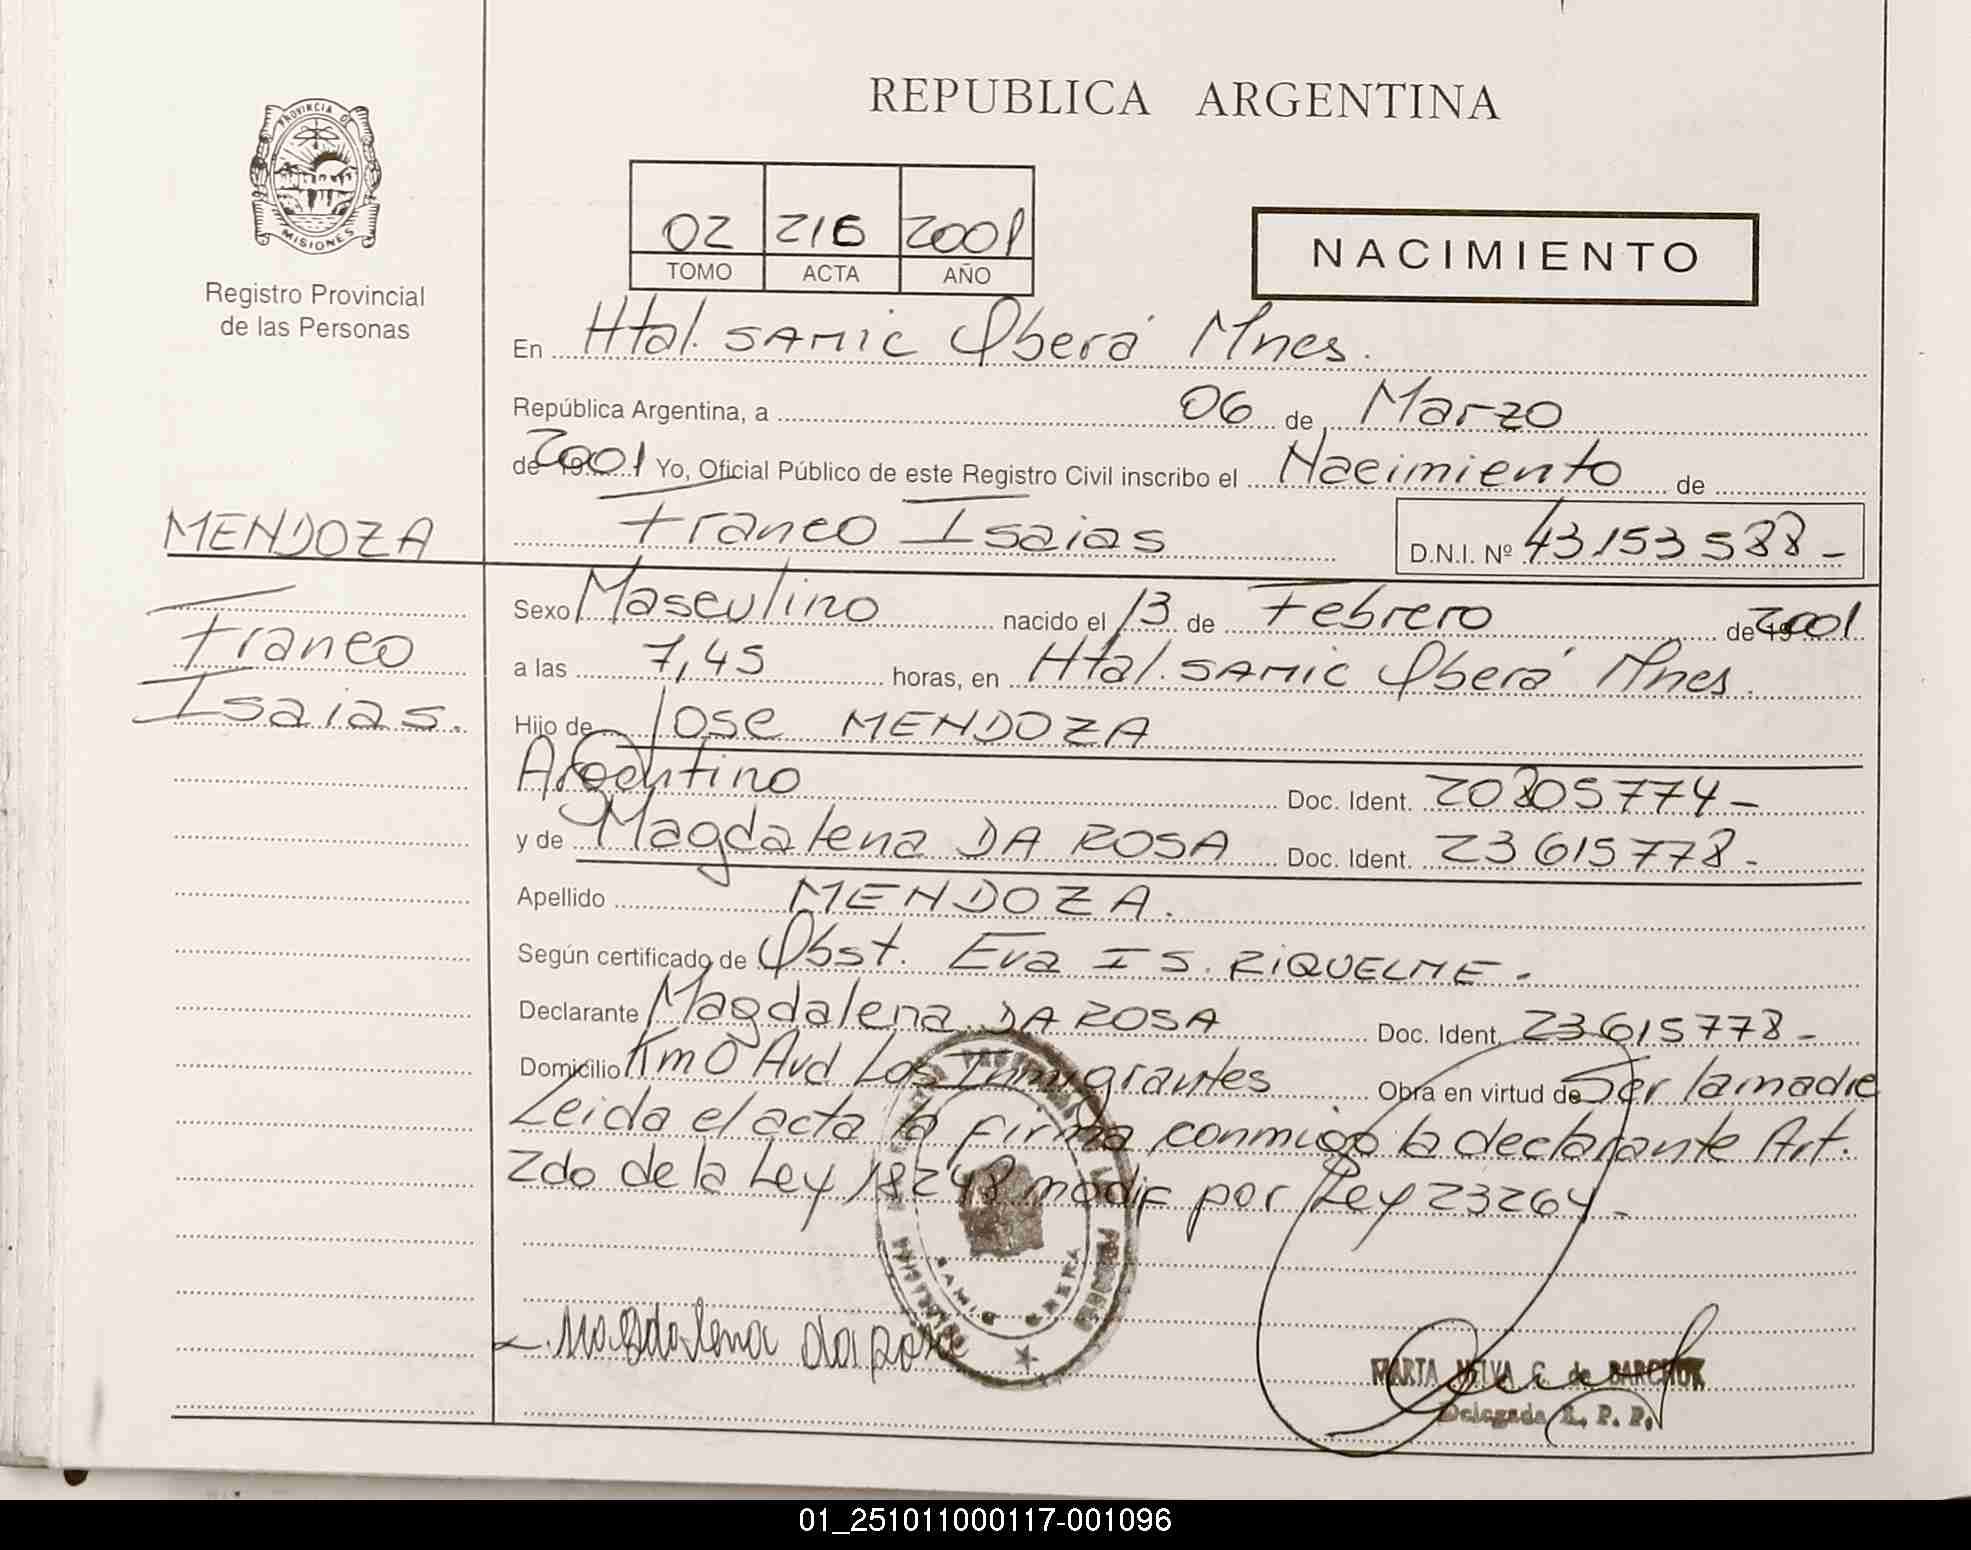 REPUBLICA ARGENTINA
PROVINCIA DE
MISIONES
Registro Provincial
de las Personas
02 216 2001
TOMO ACTA AÑO
NACIMIENTO
En Htal. SAMIC Oberá Mnes.
República Argentina, a 06 de Marzo
de 2001 Yo, Oficial Público de este Registro Civil inscribo el Nacimiento de
Franco Isaias D.N.I. Nº 43153588-
MENDOZA
Franco
Isaias.
Sexo Masculino nacido el 13 de Febrero de 2001
a las 7,45 horas, en Htal. SAMIC Oberá Mnes.
Hijo de Jose MENDOZA
Argentino Doc. Ident. 20805774-
y de Magdalena DA ROSA Doc. Ident. 23615778-
Apellido MENDOZA.
Según certificado de Obst. Eva IS. RIQUELME-
Declarante Magdalena DA ROSA Doc. Ident. 23615778-
Domicilio Km 0 Avd Los Inmigrantes Obra en virtud de Ser la madre
Leida el acta la firma conmigo la declarante Art.
2do de la Ley 18248 modif por Ley 23264-
SAMIC OBERA
Magdalena da rosa
MARTA C. de BARCHUK
Delegada R. P. P.
01_251011000117-001096